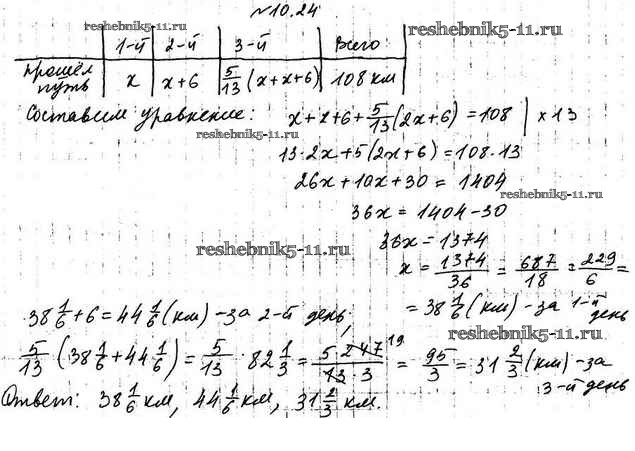 №10.24
reshebnik5-11.ru
1-й 2-й 3-й Всего
прошёл путь x x+6 5/13 (x+x+6) 108 км
reshebnik5-11.ru
Составим уравнение: x+x+6+5/13(2x+6)=108 | x13
reshebnik5-11.ru
13·2x+5(2x+6)=108·13
26x+10x+30=1404
reshebnik5-11.ru
36x=1404-30
36x=1374
reshebnik5-11.ru
x=1374/36=687/18=229/6=
=38 1/6 (км) -за 1-й день
38 1/6+6=44 1/6 (км) -за 2-й день,
reshebnik5-11.ru
5/13 (38 1/6+44 1/6)=5/13·82 1/3=5 247 19/13·3=95/3=31 2/3 (км) -за 3-й день
Ответ: 38 1/6 км, 44 1/6 км, 31 2/3 км.